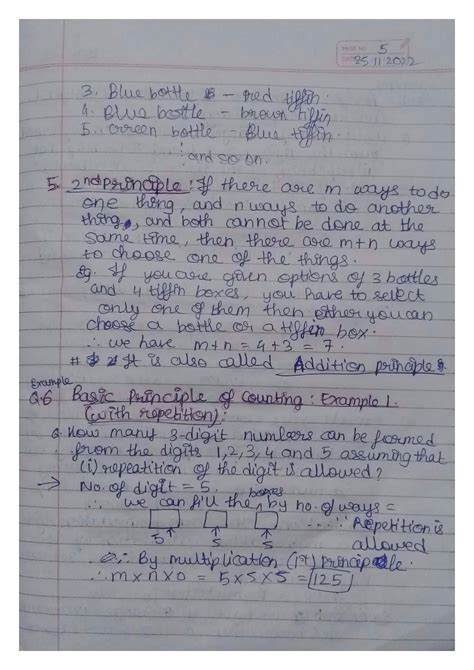 PAGE NO 5
DATE 25 11 2022
3. Blue bottle - red tiffin.
4. Blue bottle - brown tiffin
5. Green bottle - Blue tiffin.
and so on.
5. 2nd principle: If there are m ways to do
one thing, and n ways to do another
thing, and both cannot be done at the
same time, then there are m+n ways
to choose one of the things.
eg. If you are given options of 3 bottles
and 4 tiffin boxes, you have to select
only one of them then either you can
choose a bottle or a tiffin box.
∴ we have m+n = 4+3 = 7.
# It is also called Addition principle.
Example
Q.6 Basic Principle of Counting: Example 1.
(with repetition):
Q. How many 3-digit numbers can be formed
from the digits 1,2,3,4 and 5 assuming that
(i) repeatition of the digit is allowed?
→ No. of digit = 5.
boxes
∴ we can fill the, by no. of ways =
5 5 5 ∴ Repetition is
allowed
By multiplication (1st) principle.
∴ m x n x o = 5 x 5 x 5 = 125